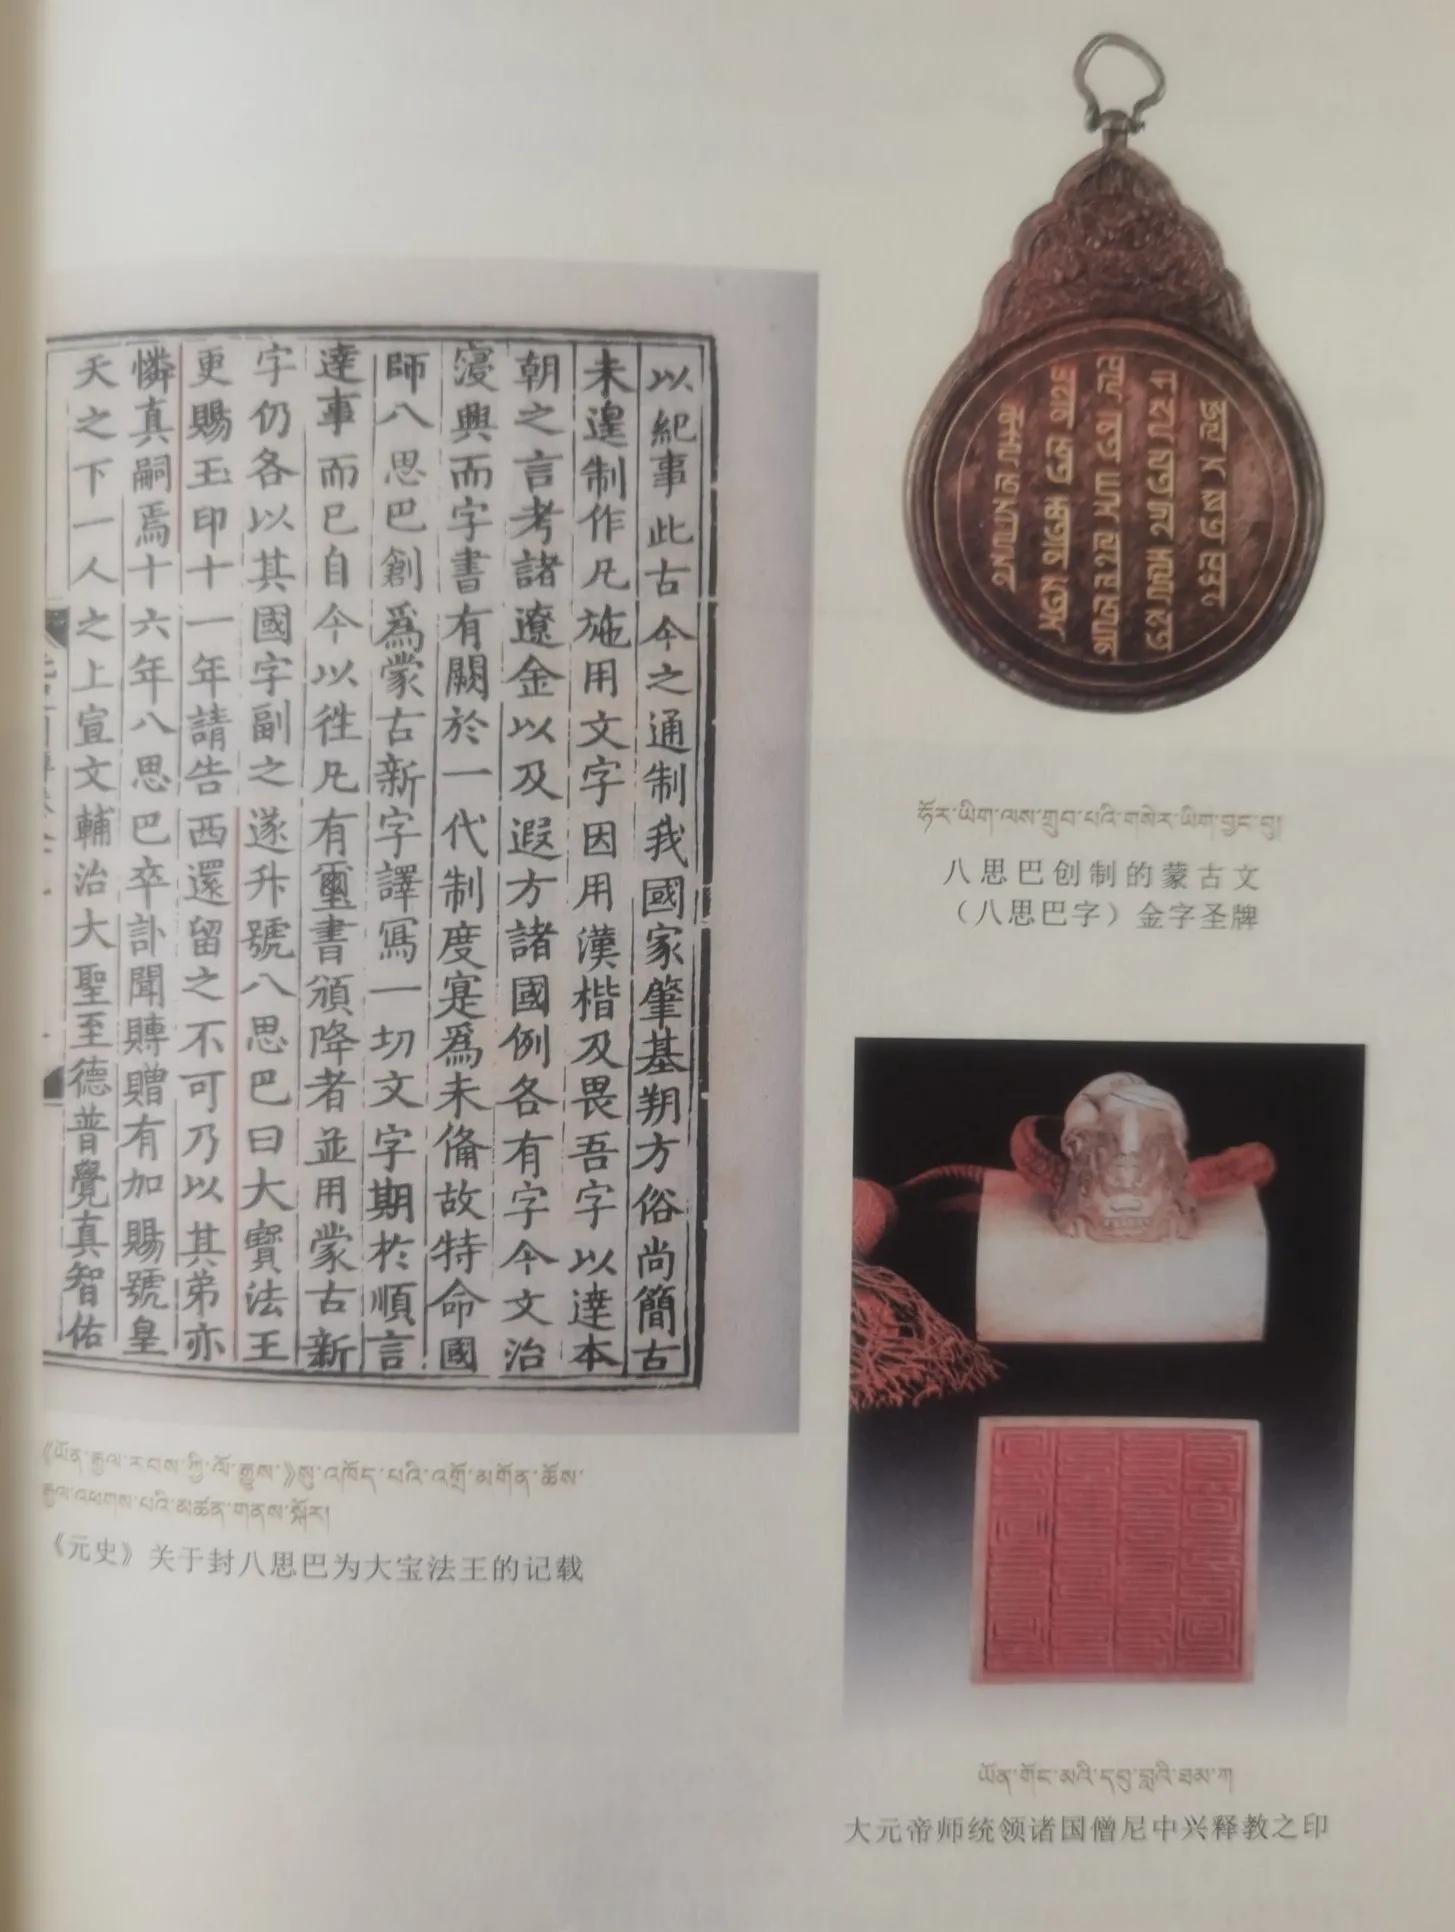 以紀事此古今之通制我國家肇基朔方俗尚簡古
未遑制作凡施用文字因用漢楷及畏吾字以達本
朝之言考諸遼金以及遐方諸國例各有字今文治
寖興而字書有闕於一代制度寔爲未備故特命國
師八思巴創爲蒙古新字譯寫一切文字期於順言
達事而已自今以徃凡有璽書頒降者並用蒙古新
字仍各以其國字副之遂升號八思巴曰大寶法王
更賜玉印十一年請告西還留之不可乃以其弟亦
憐真嗣焉十六年八思巴卒訃聞賻贈有加賜號皇
天之下一人之上宣文輔治大聖至德普覺真智佑
《ཡོན་རྒྱལ་རབས་ཀྱི་ལོ་རྒྱུས་》སུ་འཁོད་པའི་འགྲོ་མགོན་ཆོས་
རྒྱལ་འཕགས་པའི་མཚན་གནས་སྐོར།
《元史》关于封八思巴为大宝法王的记载
ཧོར་ཡིག་ལས་གྲུབ་པའི་གསེར་ཡིག་བྱང་བུ།
八思巴创制的蒙古文
（八思巴字）金字圣牌
ཡོན་གོང་མའི་དབུ་བླའི་ཐམ་ཀ
大元帝师统领诸国僧尼中兴释教之印